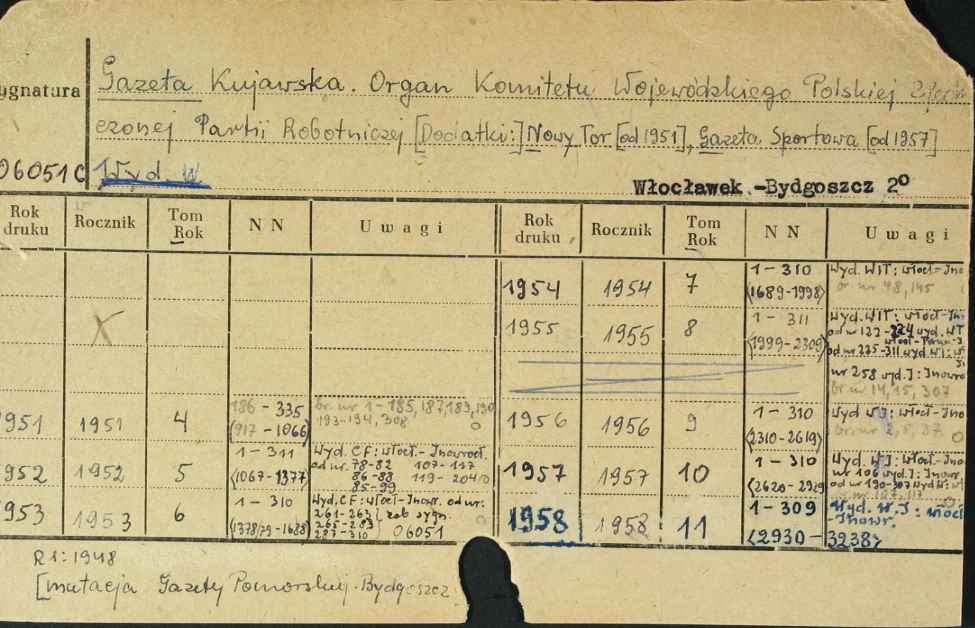 ygnatura
Gazeta Kujawska. Organ Komitetu Wojewódzkiego Polskiej Zjedn
czonej Partii Robotniczej [Dodatki:] Nowy Tor [od 1951], Gazeta Sportowa [od 1957]
06051 C Wyd. W
Włocławek.-Bydgoszcz 2º
Rok druku Rocznik Tom Rok NN Uwagi Rok druku Rocznik Tom Rok NN Uwagi
1954 1954 7 1-310 Wyd. WIT: włocł-Ino
(1689-1998) br nr 98, 145
X 1955 1955 8 1-311 Wyd. WIT: włocł-Ino
(1999-2309) od nr 122-224 wyd. WT
od nr 225-311 wyd. WI: w
nr 258 wyd. I: Inowro
br nr 14, 15, 307
951 1951 4 186-335 br. nr 1-185, 187, 189, 190 1956 1956 9 1-310 Wyd WI: włocł-Ino
(917-1066) 193-194, 308 (2310-2619) br nr 2, 5, 37
952 1952 5 1-311 Wyd. CF: włocł-Inowrocł. 1957 1957 10 1-310 Wyd. WI: włocł-Ino
(1067-1377) od nr. 78-82 107-117 (2620-2929) nr 106 wyd. I: Inowr
86-88 119-204 od nr 190-307 wyd W: wł
85-99
953 1953 6 1-310 Wyd. CF: włocł-Inowr. od nr: 1958 1958 11 1-309 Wyd. W.I: włocł
(1378/79-1688) 261-263 zob sygn. (2930-3238) -Inowr.
265-283 06051
287-310
R1: 1948
[mutacja Gazety Pomorskiej. Bydgoszcz